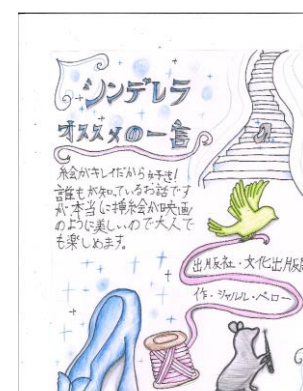 シンデレラ
オススメの一言
絵がキレイだから好き!
誰もが知っているお話です
が、本当に挿絵が映画
のように美しいので大人で
も楽しめます。
出版社・文化出版局
作・シャルル・ペロー